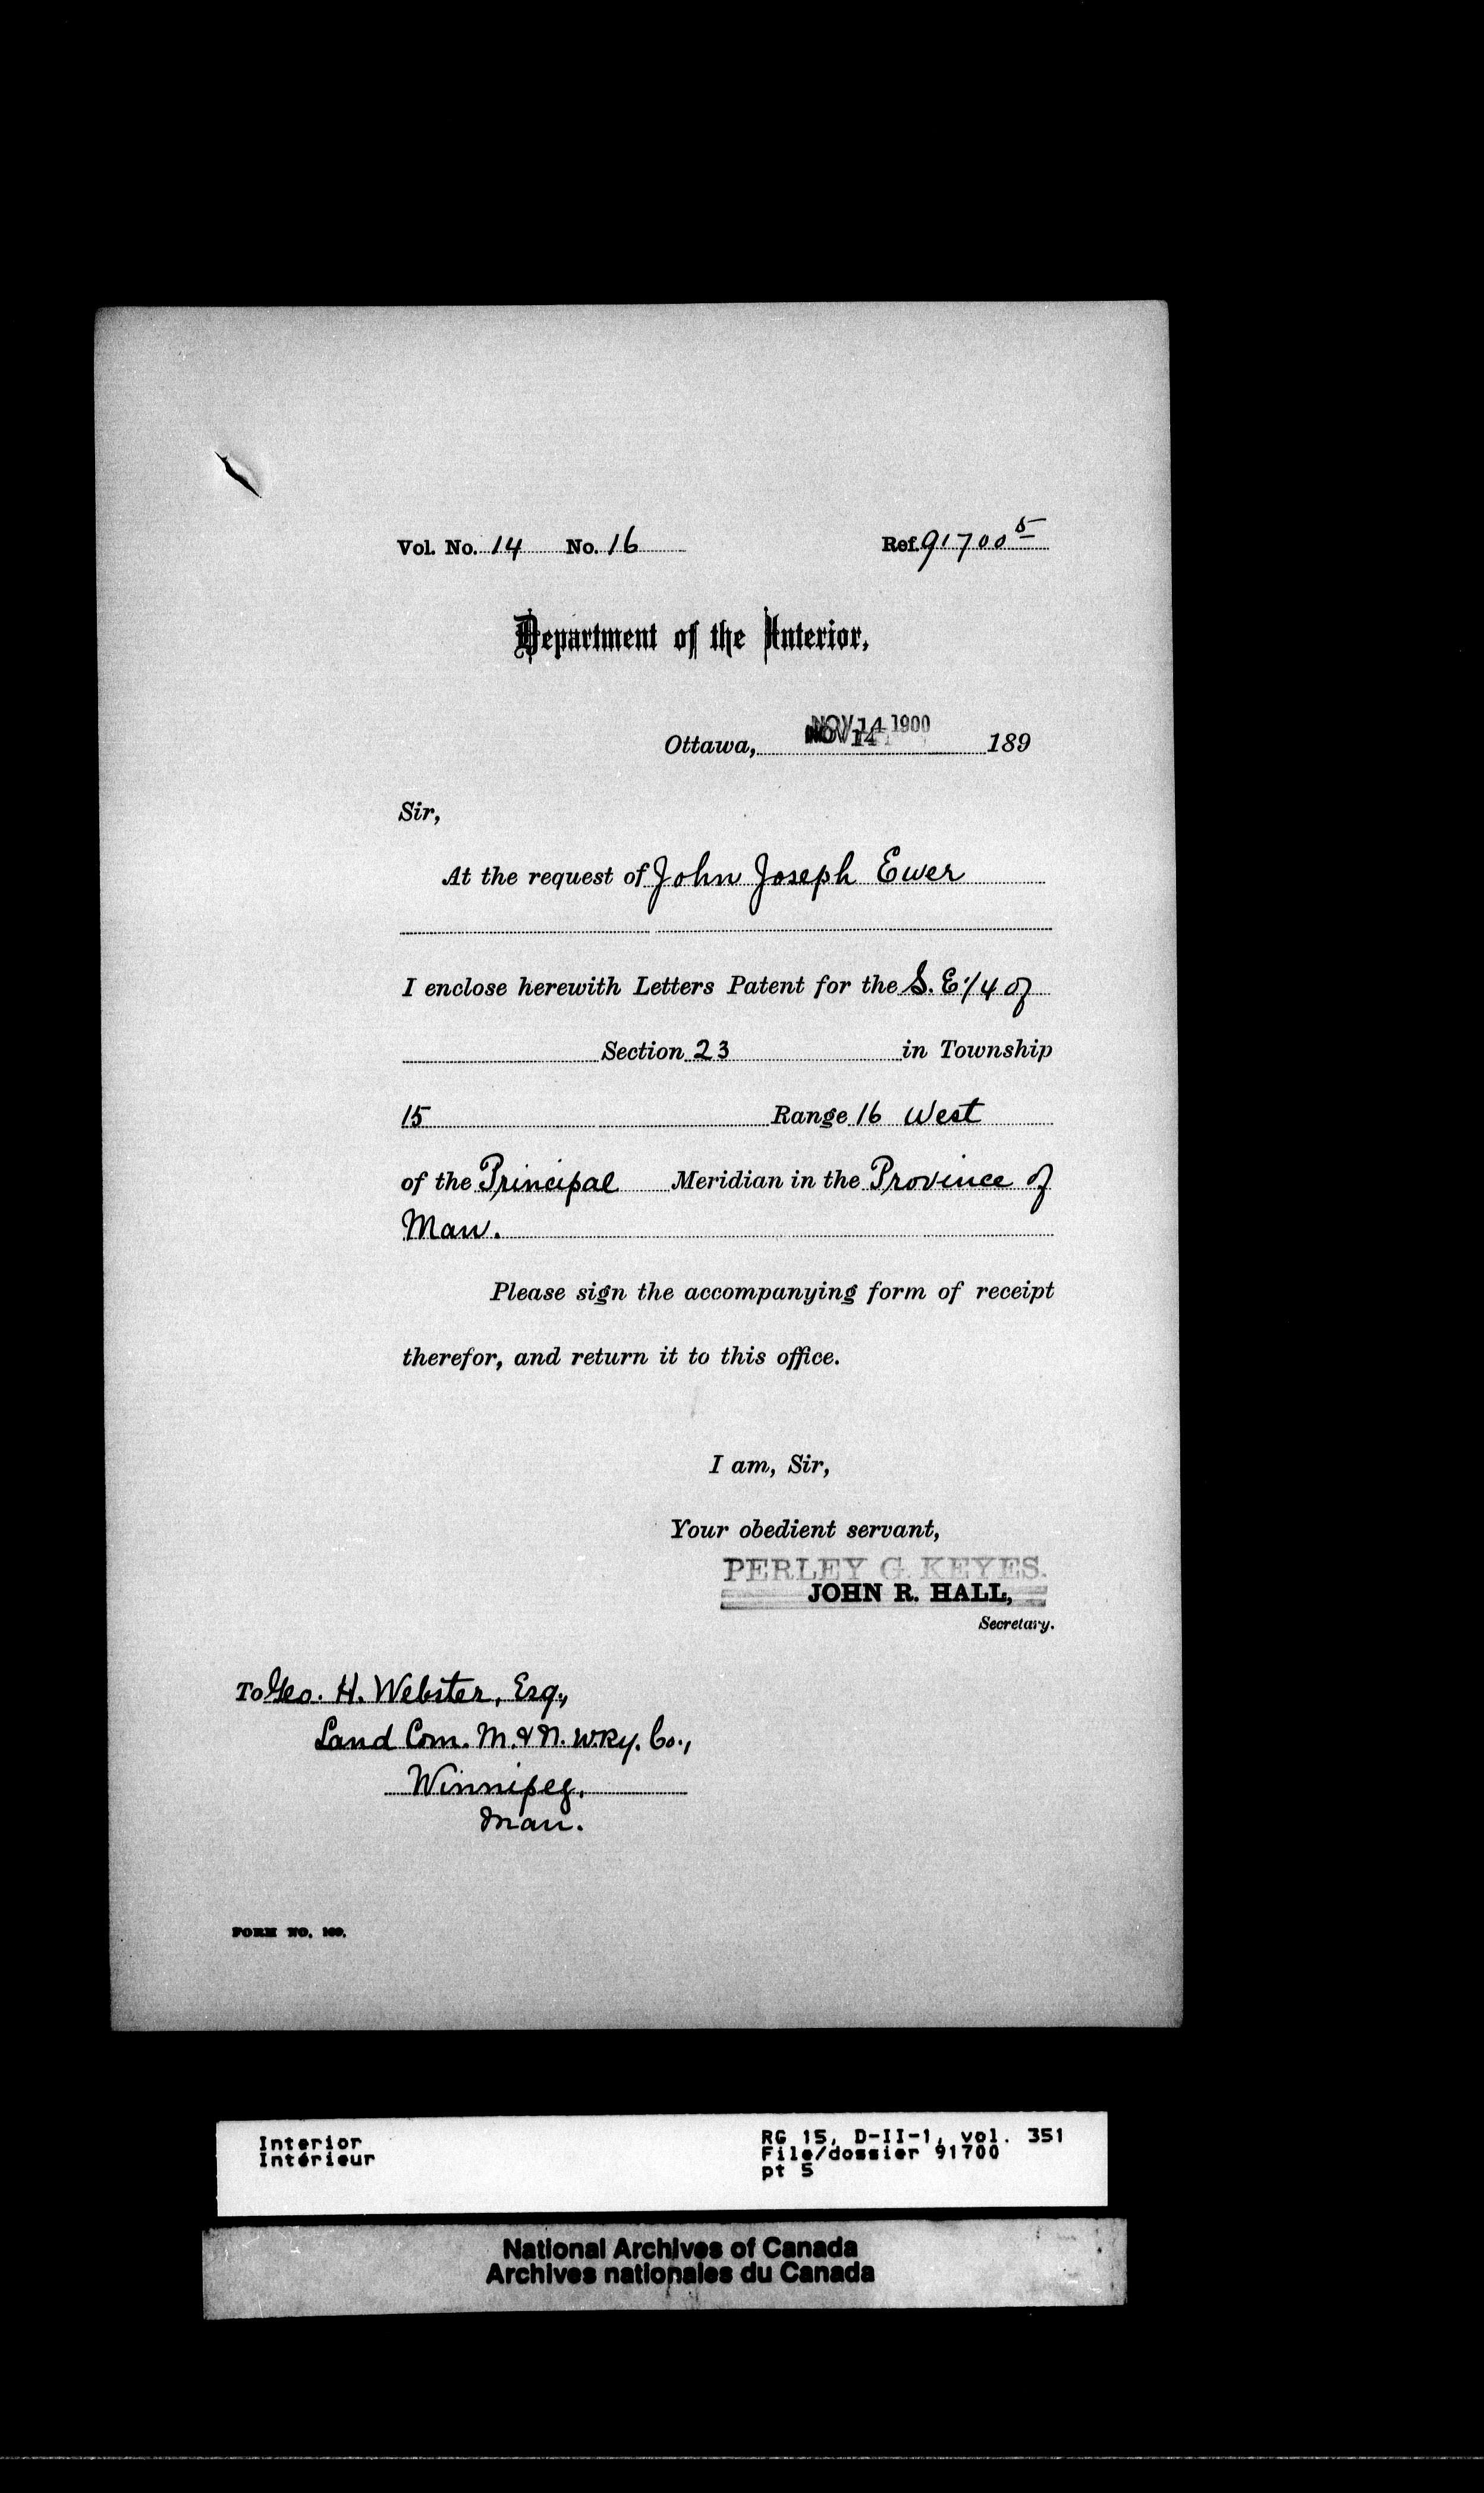 Vol. No. 14 No. 16 Ref. 91700 5
Department of the Interior,
Ottawa, NOV 14 1900 189
Sir,
At the request of John Joseph Ewer
I enclose herewith Letters Patent for the S. E. 1/4 of
Section 23 in Township
15 Range 16 West
of the Principal Meridian in the Province of
Man.
Please sign the accompanying form of receipt
therefor, and return it to this office.
I am, Sir,
Your obedient servant,
PERLEY G. KEYES.
JOHN R. HALL,
Secretary.
To Geo. H. Webster, Esq.,
Land Com. M. & N. W. Ry. Co.,
Winnipeg,
Man.
FORM NO. 169.
Interior
Intérieur
RG 15, D-II-1, vol. 351
File/dossier 91700
pt 5
National Archives of Canada
Archives nationales du Canada